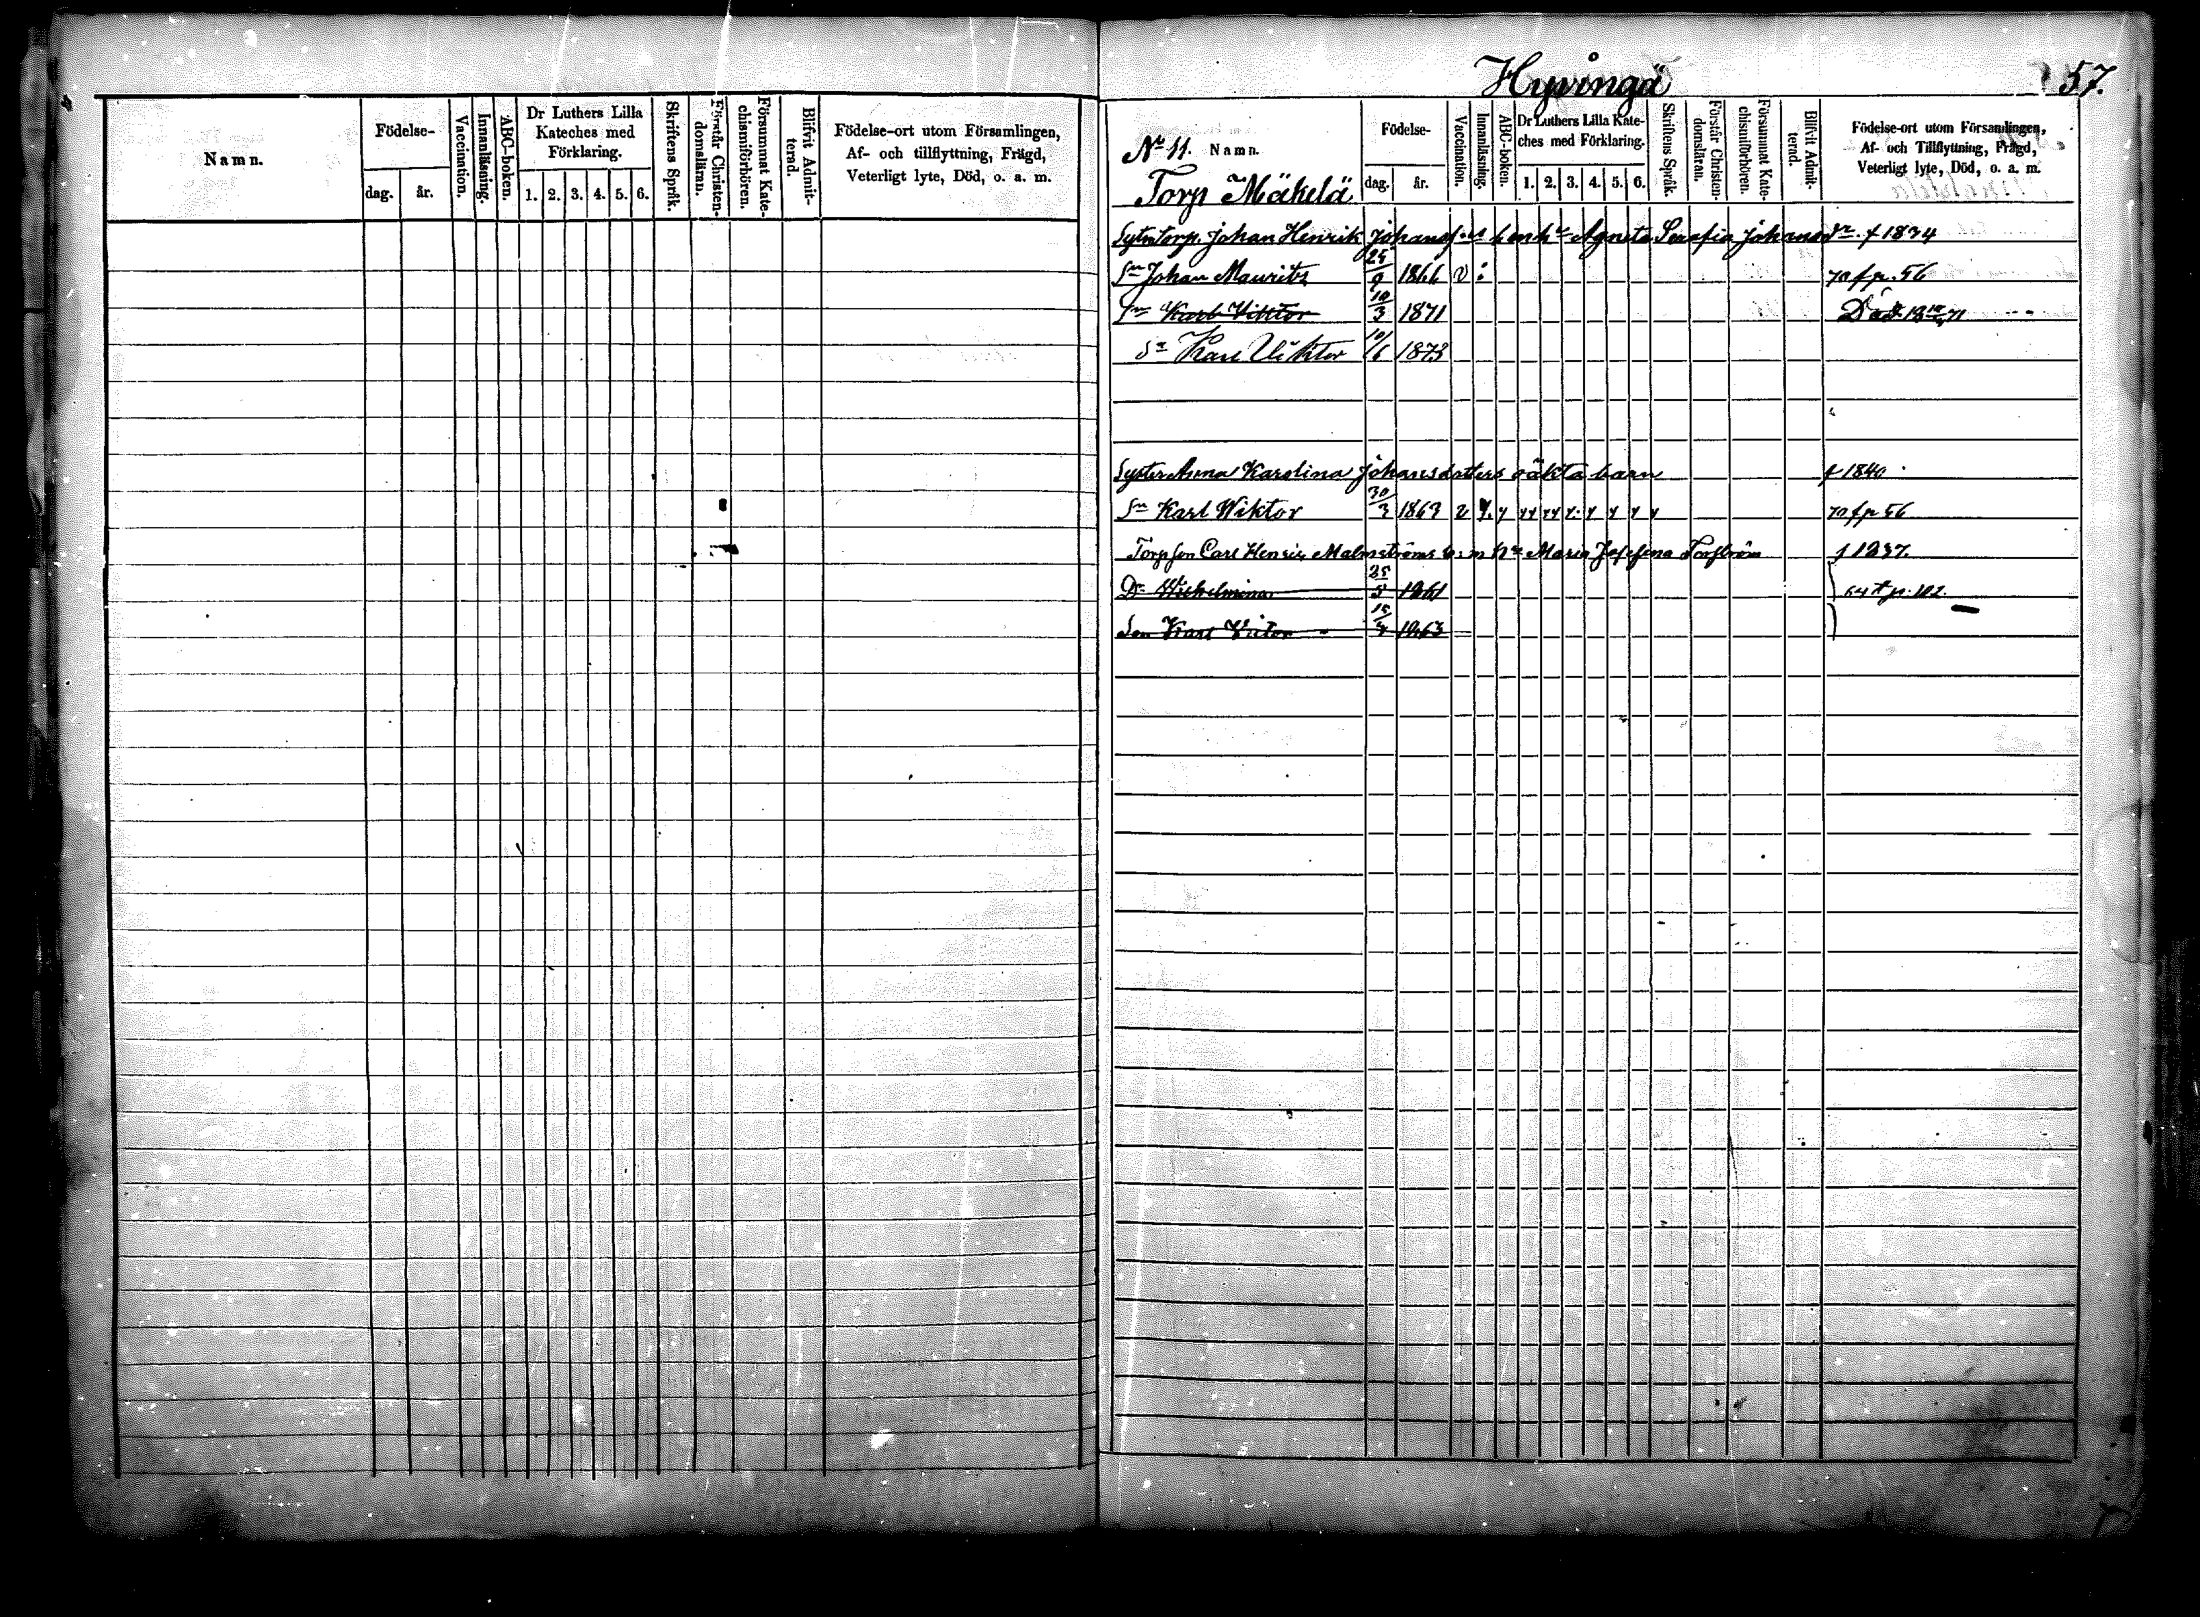 Namn.
Födelse-
dag.
år.
Vaccination.
Innanläsning.
ABC-boken.
Dr Luthers Lilla
Kateches med
Förklaring.
1. 2. 3. 4. 5. 6.
Skriftens Språk.
Förstår Christen-
domsläran.
Försummat Kate-
chismiförhören.
Blifvit Admit-
terad.
Födelse-ort utom Församlingen,
Af- och tillflyttning, Frägd,
Veterligt lyte, Död, o. a. m.
Hyvingä
57.
No 11. Namn.
Torp Mäkelä
Födelse-
dag.
år.
Vaccination.
Innanläsning.
ABC-boken.
Dr Luthers Lilla Kate-
ches med Förklaring.
1. 2. 3. 4. 5. 6.
Skriftens Språk.
Förstår Christen-
domsläran.
Försummat Kate-
chismiförhören.
Blifvit Admit-
terad.
Födelse-ort utom Församlingen,
Af- och Tillflyttning, Frägd,
Veterligt lyte, Död, o. a. m.
Torp. Johan Henrik Agneta Serafia Johansdr. f 1834
Sn Johan Maurits 1866 v fr. 56
Sn Karl Viktor 10/3 1871 Död
Sn Karl Viktor 10/6 1873
Anna Karolina Johansdotters oäkta barn f 1840
Sn Karl Wiktor 30/3 1863 v fr 56
Carl Henric Malmströms Maria Josefina f 1837.
Dr Wilhelmina 25/5 1861
Son Karl Victor 1863